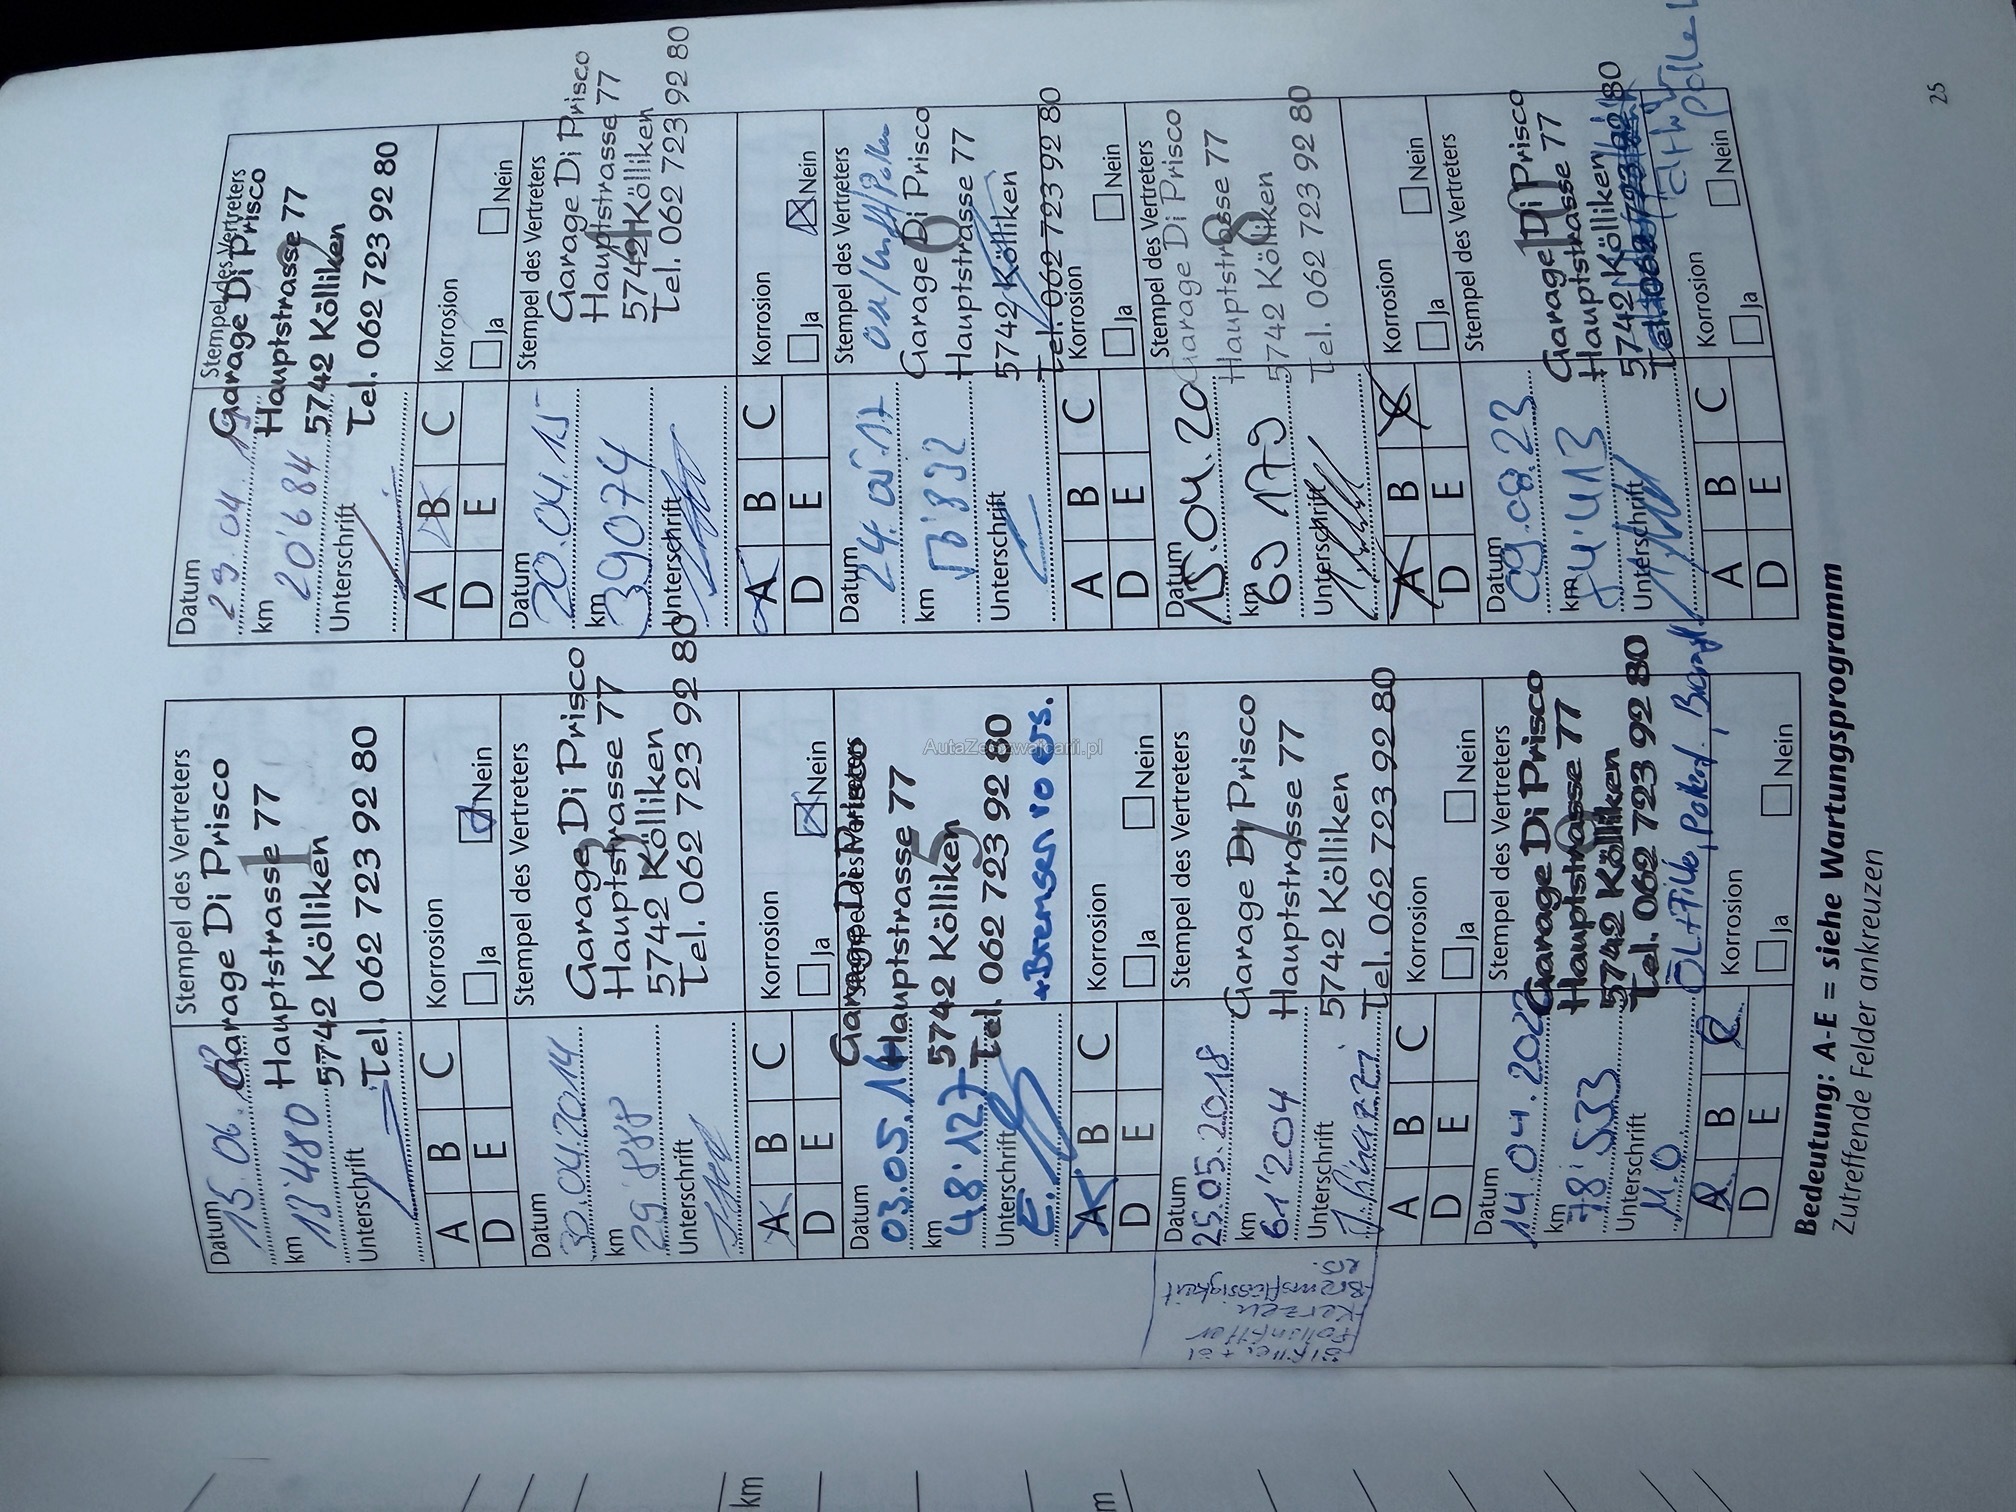 Datum
Stempel des Vertreters
15.06.12
Garage Di Prisco
Hauptstrasse 77
5742 Kölliken
Tel. 062 723 92 80
1
km
13'480
Unterschrift
Korrosion
Ja
Nein
A B C
D E
Datum
Stempel des Vertreters
23.04.
Garage Di Prisco
Hauptstrasse 77
5742 Kölliken
Tel. 062 723 92 80
km
20'684
Unterschrift
Korrosion
Ja
Nein
A B C
D E
Datum
Stempel des Vertreters
30.04.2014
Garage Di Prisco
Hauptstrasse 77
5742 Kölliken
Tel. 062 723 92 80
3
km
29'888
Unterschrift
Korrosion
Ja
Nein
A B C
D E
Datum
Stempel des Vertreters
20.04.15
Garage Di Prisco
Hauptstrasse 77
5742 Kölliken
Tel. 062 723 92 80
4
km
39074
Unterschrift
Korrosion
Ja
Nein
A B C
D E
Datum
Stempel des Vertreters
03.05.16
Garage Di Prisco
Hauptstrasse 77
5742 Kölliken
Tel. 062 723 92 80
5
+Bremsen vo ers.
km
48'127
Unterschrift
Korrosion
Ja
Nein
A B C
D E
Datum
Stempel des Vertreters
24.05.17
Öll/Luft/Pollen
Garage Di Prisco
Hauptstrasse 77
5742 Kölliken
Tel. 062 723 92 80
6
km
Unterschrift
Korrosion
Ja
Nein
A B C
D E
Datum
Stempel des Vertreters
25.05.2018
Garage Di Prisco
Hauptstrasse 77
5742 Kölliken
Tel. 062 723 92 80
7
km
61'204
Unterschrift
Korrosion
Ja
Nein
A B C
D E
Pollenfilter
Kerzen
Bremsflüssigkeit
Datum
Stempel des Vertreters
15.04.20
Garage Di Prisco
Hauptstrasse 77
5742 Kölliken
Tel. 062 723 92 80
8
km
69179
Unterschrift
Korrosion
Ja
Nein
A B C
D E
Datum
Stempel des Vertreters
14.04.2022
Garage Di Prisco
Hauptstrasse 77
5742 Kölliken
Tel. 062 723 92 80
9
km
78'533
Unterschrift
M.O
ÖL+Filter, Pollenf.,
Korrosion
Ja
Nein
A B C
D E
Datum
Stempel des Vertreters
09.08.23
Garage Di Prisco
Hauptstrasse 77
5742 Kölliken
Tel. 062 723 92 80
10
km
84'413
Unterschrift
Korrosion
Ja
Nein
A B C
D E
Bedeutung: A-E = siehe Wartungsprogramm
Zutreffende Felder ankreuzen
25
km
AutaZeSzwajcarii.pl